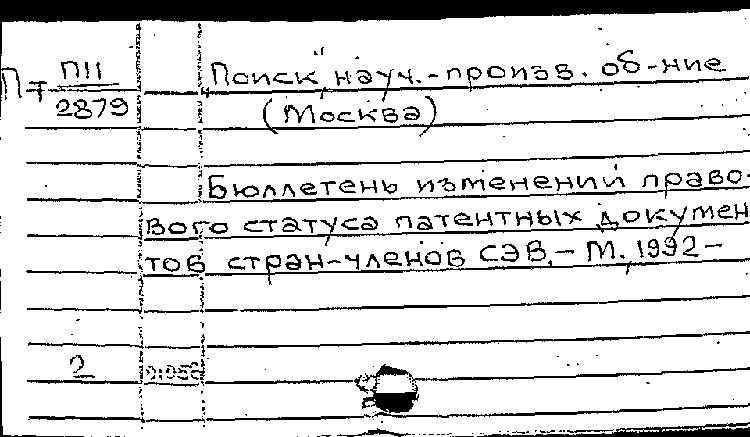 П-т П11/2879
„Поиск" науч.-произв. об-ние
(Москва)
Бюллетень изменений право-
вого статуса патентных докумен
тов стран-членов СЭВ.- М., 1992-
2